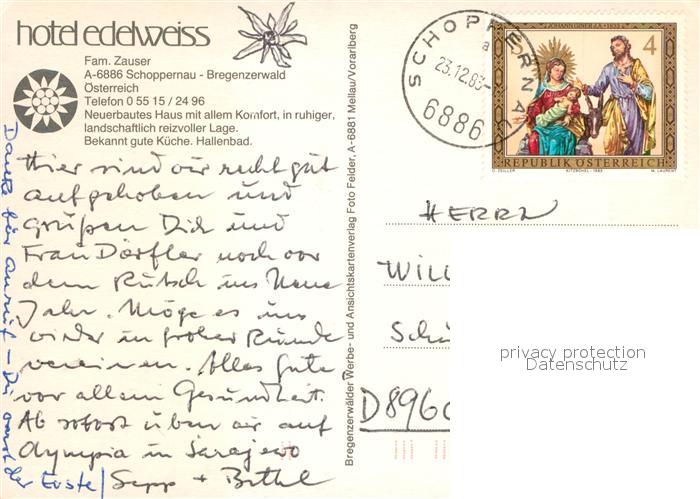 hotel edelweiss
Fam. Zauser
A-6886 Schoppernau - Bregenzerwald
Österreich
Telefon 0 55 15 / 24 96
Neuerbautes Haus mit allem Komfort, in ruhiger,
landschaftlich reizvoller Lage.
Bekannt gute Küche. Hallenbad.
Hier sind wir recht gut
aufgehoben und
grüßen Dich und
Frau Dörfler noch vor
dem Rutsch ins Neue
Jahr. Möge es uns
wieder in froher Runde
vereinen. Alles Gute
vor allem Gesundheit.
Ab sofort üben wir auf
Olympia in Sarajevo
Sepp +
Danke für Anruf – Du warst
der Erste
Bregenzerwälder Werbe- und Ansichtskartenverlag Foto Felder, A-6881 Mellau/Vorarlberg
SCHOPPERNAU
a
23.12.83
6886
4
REPUBLIK ÖSTERREICH
O. ZEILLER KITZBÜHEL-1983 M. LAURENT
HERRN
WILL
Schü
D8960
privacy protection
Datenschutz